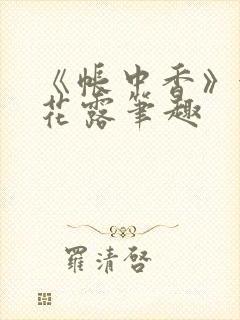 《帐中香》
花露笔趣
羅清啓